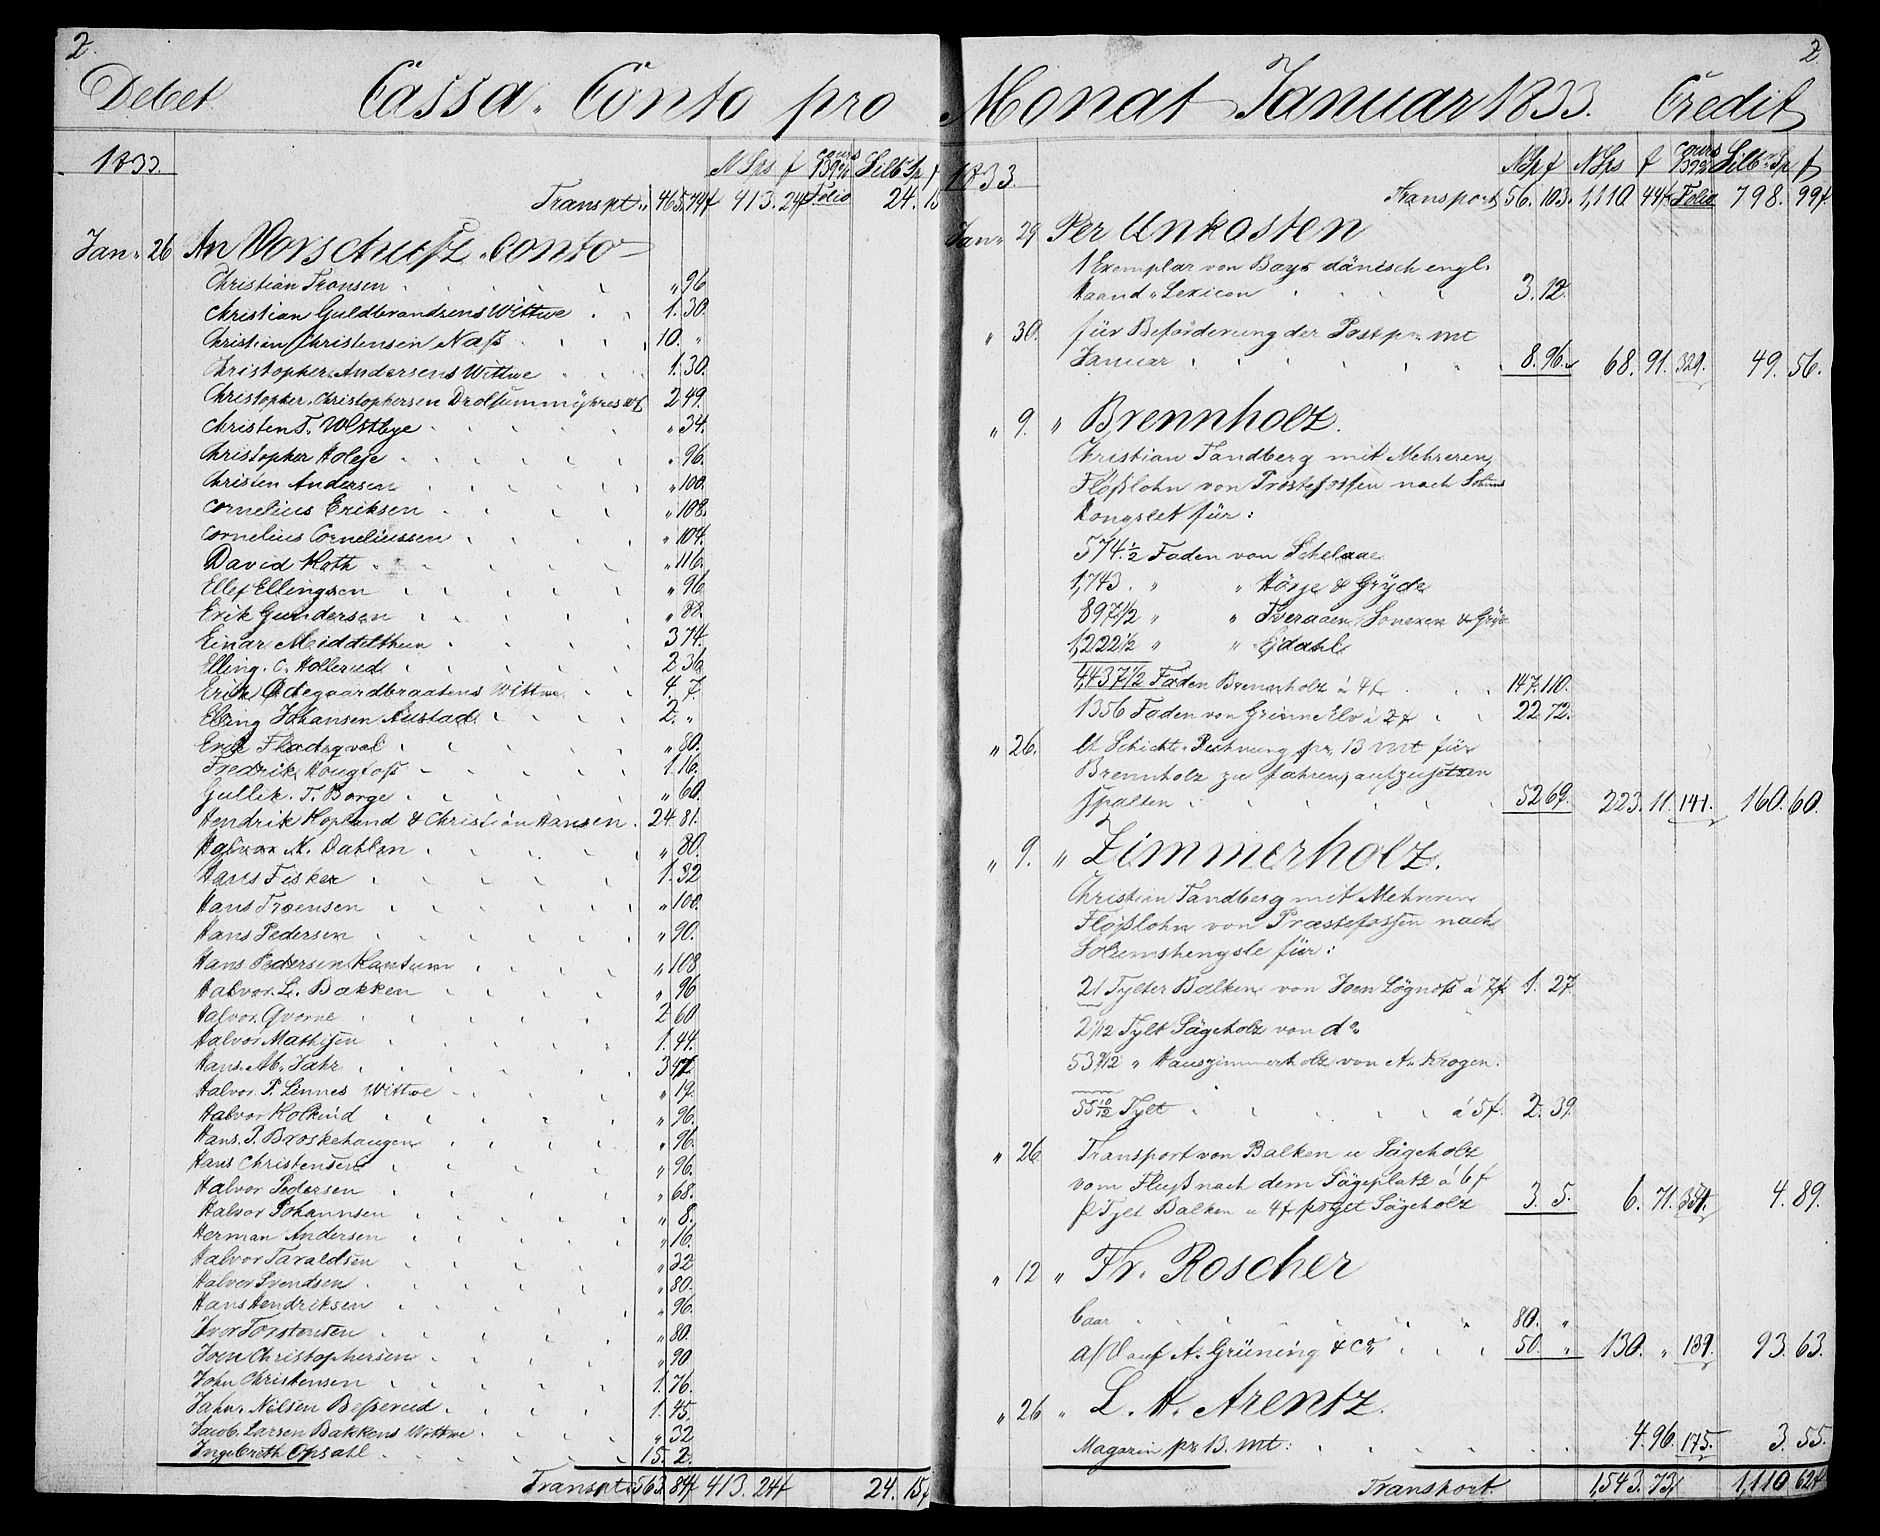 2.
Debet. Cassa. Conto pro
1833. N Sps f Cours 139% Silb Sp f
Transpt. 465. 74f 413. 24f Folio 24. 15
Jan. 26 An Vorschuß. Conto
Christian Tronsen " 96
Christian Guldbrandsens Wittwe 1. 30.
Christian Christensen Naß 10. "
Christopher Andersens Wittwe 1. 30.
Christopher Christophersen 2 49.
Christen T. Westbye " 34.
Christopher Holeje " 96.
Christen Andersen " 100.
Cornelius Eriksen " 108.
Cornelius Corneliussen " 104.
David Koth " 116.
Ellef Ellingsen " 96
Erik Gundersen " 88.
Einar Meiddelthun 3 74.
Elling. C. Hollerud 2 36
Erik Ødegaardbraatens Wittwe 4. 7.
Elling Johansen Austad 2. "
Erik " 80.
Fredrik Hougfoß 1. 16.
Gullik. T. Borge " 60.
Hendrik Hopland & Christian Hansen 24. 81.
Halvor N. Dahlen " 80.
Hans Fisker 1. 32
Hans Troensen " 100.
Hans Pedersen " 90.
Hans Pedersen Kansum " 108
Halvor. L. Bakken " 96
Halvor. Qvorne 2 60
Halvor Mathisen 1. 44.
Hans. Ab. Jahr 3
Halvor. P. Linnes Wittwe " 19.
Halvor Kolkind " 96.
Hans. P. Broskehaugen " 96.
Hans Christensen " 96.
Halvor Pedersen " 68.
Halvor Johannsen " 8.
Herman Andersen " 16.
Halvor Taraldsen " 32
Halvor Svendsen " 80.
Hans Hendriksen " 96.
Iver Torstensen " 80.
Joen Christophersen " 90
John Christensen 1. 76.
Jahn Nilsen Besserud 1. 45.
Jacob. Larsen Bakkens Wittwe " 32
Ingebreth Opsahl 15. 2.
Transpt. 563. 84f 413. 24f 24. 15f
2
Monat Januar 1833. Credit
1833. N Sp f N Sps f Cours 139% Silb. Sp f
Transport 56. 103. 1,110 44f Folio 798. 99f.
Jan. 29 Per Unkosten
1 Exemplar von Bays dänisch engl.
Haand. Lexicon 3. 12.
" 30. für Beförderung der Post pr. mt
Januar 8. 96. 68. 91. 329. 49. 56.
" 9. " Brennholz.
Christian Tandberg mit Mehreren
Flößlohn von Præstefossen nach
Kongslet für:
574 1/2 Faden von Schelaae
1,743 " " Hörje & Gryde
897 1/2 " " Tveraaen, Sonexen & Gryde
1,222 1/2 " " Ejdahl
4,437 1/2 Faden Brennholz à 4f 147. 110.
1356 Faden von Grinne Elv à 2f 22. 72.
" 26. lt Schicht. Rechnung pr. 13 mt für
Brennholz zu fahren, aufzusetzen
spalten 52 69. 223. 11. 141. 160. 60.
" 9. " Zimmerholz.
Christian Tandberg mit Mehreren
Flößlohn von Præstefossen nach
für:
21 Tylter Balken von Joen Lögnoß à 7f. 1. 27.
2 1/12 Tylt Sägeholz von do
53 9/12 " Hauszimmerholz von A. Krogen.
55 10/12 Tylt à 5f. 2. 39.
" 26. Transport von Balken u Sägeholz
vom Fluß nach dem Sägeplatz à 6f
p Tylt Balken u 4f p Tylt Sägeholz 3. 5. 6. 71. 351. 4. 89.
" 12 " Fr. Roscher
baar 80. "
a/ auf A. Grüning & Co. 50. " 130. " 139. 93. 63.
" 26 " L. H. Arentz.
Magazin pr 13. mt: 4. 96. 175. 3. 55.
Transport. 1,543. 73f 1,110 62f